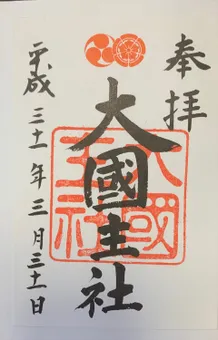 奉拝
大國主社
平成三十一年三月三十一日
大國主社